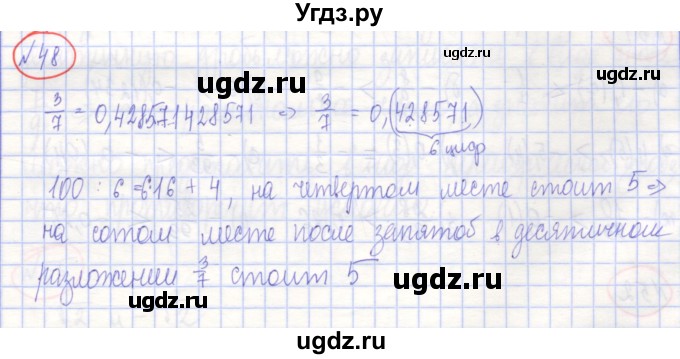 Угдз.ру
№48
ugdz.ru ugdz.ru
3/7 = 0,428571428571 => 3/7 = 0,(428571)
6 цифр
ugdz.ru ugdz.ru
100 : 6 = 6·16 + 4, на четвертом месте стоит 5 =>
на сотом месте после запятоб в десятичном
ugdz.ru ugdz.ru
разложении 3/7 стоит 5
ugdz.ru ugdz.ru
ugdz.ru